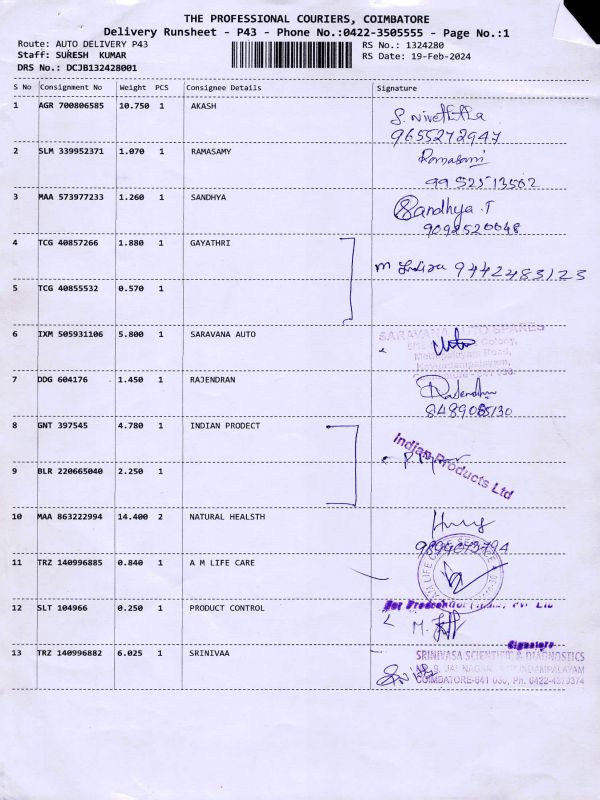 THE PROFESSIONAL COURIERS, COIMBATORE
Delivery Runsheet - P43 - Phone No.:0422-3505555 - Page No.:1
Route: AUTO DELIVERY P43 RS No.: 1324280
Staff: SURESH KUMAR RS Date: 19-Feb-2024
DRS No.: DCJB132428001
S No Consignment No Weight PCS Consignee Details Signature
1 AGR 700806585 10.750 1 AKASH S. Nivethitha
9655272947
2 SLM 339952371 1.070 1 RAMASAMY Ramasami
9952513562
3 MAA 573977233 1.260 1 SANDHYA Sandhya .T
4 TCG 40857266 1.880 1 GAYATHRI
M Indira 9442483123
5 TCG 40855532 0.570 1
6 IXM 505931106 5.800 1 SARAVANA AUTO SARAVANA AUTO SPARES
7 DDG 604176 1.450 1 RAJENDRAN Rajendran
8 GNT 397545 4.780 1 INDIAN PRODECT
Indian Products Ltd
9 BLR 220665040 2.250 1
10 MAA 863222994 14.400 2 NATURAL HEALSTH
11 TRZ 140996885 0.840 1 A M LIFE CARE
12 SLT 104966 0.250 1 PRODUCT CONTROL
13 TRZ 140996882 6.025 1 SRINIVAA SRINIVASA SCIENTIFIC & DIAGNOSTICS
COIMBATORE-641 030, Ph. 0422-4379374